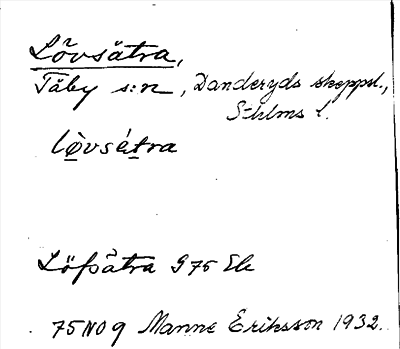 Lövsätra,
Täby s:n, Danderyds skeppsl.,
Sthlms l.
lò̱vsét̲ra
Löfsätra G 75 Ek
75 NO 9 Manne Eriksson 1932.